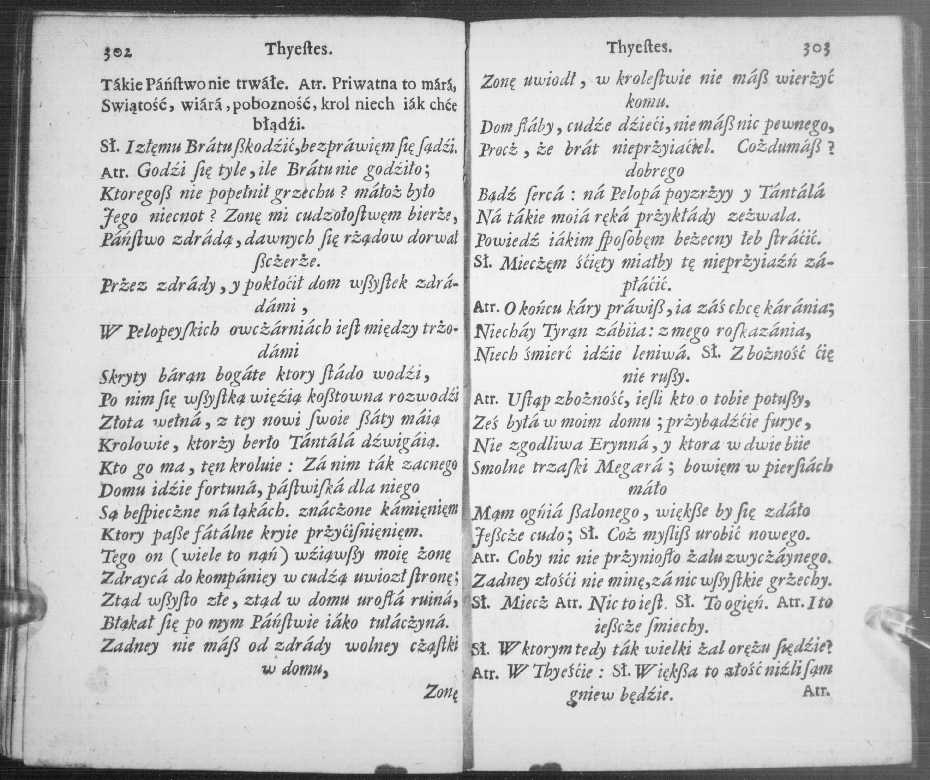 302 Thyeſtes.
Tákie Páńſtwo nie trwáłe. Atr. Priwatna to márá,
Swiątość, wiárá, pobozność, krol niech iák chće
błądźi.
Sł. I złęmu Brátu ßkodźić, bezpráwięm ſię ſądźi.
Atr. Godźi ſię tyle, ile Brátu nie godźiło;
Ktoregoß nie popełnił grzechu? máłoż było
Jego niecnot? Zonę mi cudzołoſtwęm bierże,
Páńſtwo zdrádą, dawnych ſię rżądow dorwał
ßcżerże.
Przez zdrády, y pokłoćił dom wßyſtek zdrá-
dámi,
W Pelopeyſkich owcżárniách ieſt między trżo-
dámi
Skryty báran bogáte ktory ſtádo wodźi,
Po nim ſię wßyſtką więźią koßtowna rozwodźi
Złota wełná, z tey nowi ſwoie ßáty máią
Krolowie, ktorży berło Tántálá dźwigáią.
Kto go ma, tęn kroluie: Zá nim ták zacnego
Domu idźie fortuná, páſtwiſká dla niego
Są beſpiecżne ná łąkách. znácżone kámięnięm
Ktory paße fátálne kryie prżyćiſnięnięm.
Tego on (wiele to nąń) wźiąwßy moię żonę
Zdraycá do kompániey w cudzą uwiozł ſtronę;
Ztąd wßyſto złe, ztąd w domu uroſłá ruiná,
Błąkał ſię po mym Páńſtwie iáko tułácżyná.
Zadney nie máß od zdrády wolney cżąſtki
w domu,
Zonę
Thyeſtes. 303
Zonę uwiodł, w kroleſtwie nie máß wierżyć
komu.
Dom ſłáby, cudze dźieći, nie máß nic pewnego,
Procż, że brát nieprżyiaćiel. Coż dumáß?
dobrego
Bądź ſercá: ná Pelopá poyzrżyy y Tántálá
Ná tákie moiá ręká prżykłády zezwala.
Powiedź iákim ſpoſobęm beżecny łeb ſtráćić.
Sł. Miecżęm śćięty miałby tę nieprżyiaźń zá-
płáćić.
Atr. O końcu káry práwiß, ia záś chcę káránia;
Niecháy Tyrąn zábiia: z mego roſkazánia,
Niech śmierć idźie leniwá. Sł. Z bożność ćię
nie rußy.
Atr. Uſtąp zbożność, ieſli kto o tobie potußy,
Ześ byłá w moim domu; prżybądźćie furye,
Nie zgodliwa Erynná, y ktora w dwie biie
Smolne trzaſki Megærá; bowięm w pierſiách
máło
Mąm ogńiá ßalonego, więkße by ſię zdáło
Jeßcże cudo; Sł. Coż myſliß urobić nowego.
Atr. Coby nic nie prżynioſło żalu zwycżáynego.
Zadney złośći nie minę, zá nic wßyſtkie grzechy.
Sł. Miecż Atr. Nic to ieſt. Sł. To ogięń. Atr. I to
ießcże ſmiechy.
Sł. W ktorym tedy ták wielki żal orężu ſiędźie?
Atr. W Thyeśćie: Sł. Więkßa to złość niźli ſąm
gniew będźie.
Atr.